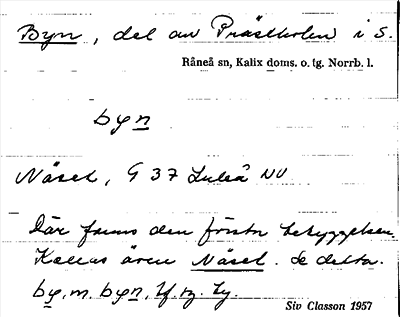 Byn, del av Prästholm i S.
Råneå sn, Kalix doms. o. tg. Norrb. l.
byn
Näset, G 37 Luleå NV
Där fanns den första bebyggelsen.
Kallas även Näset. Se detta.
by, m. byn,
Siv Classon 1957